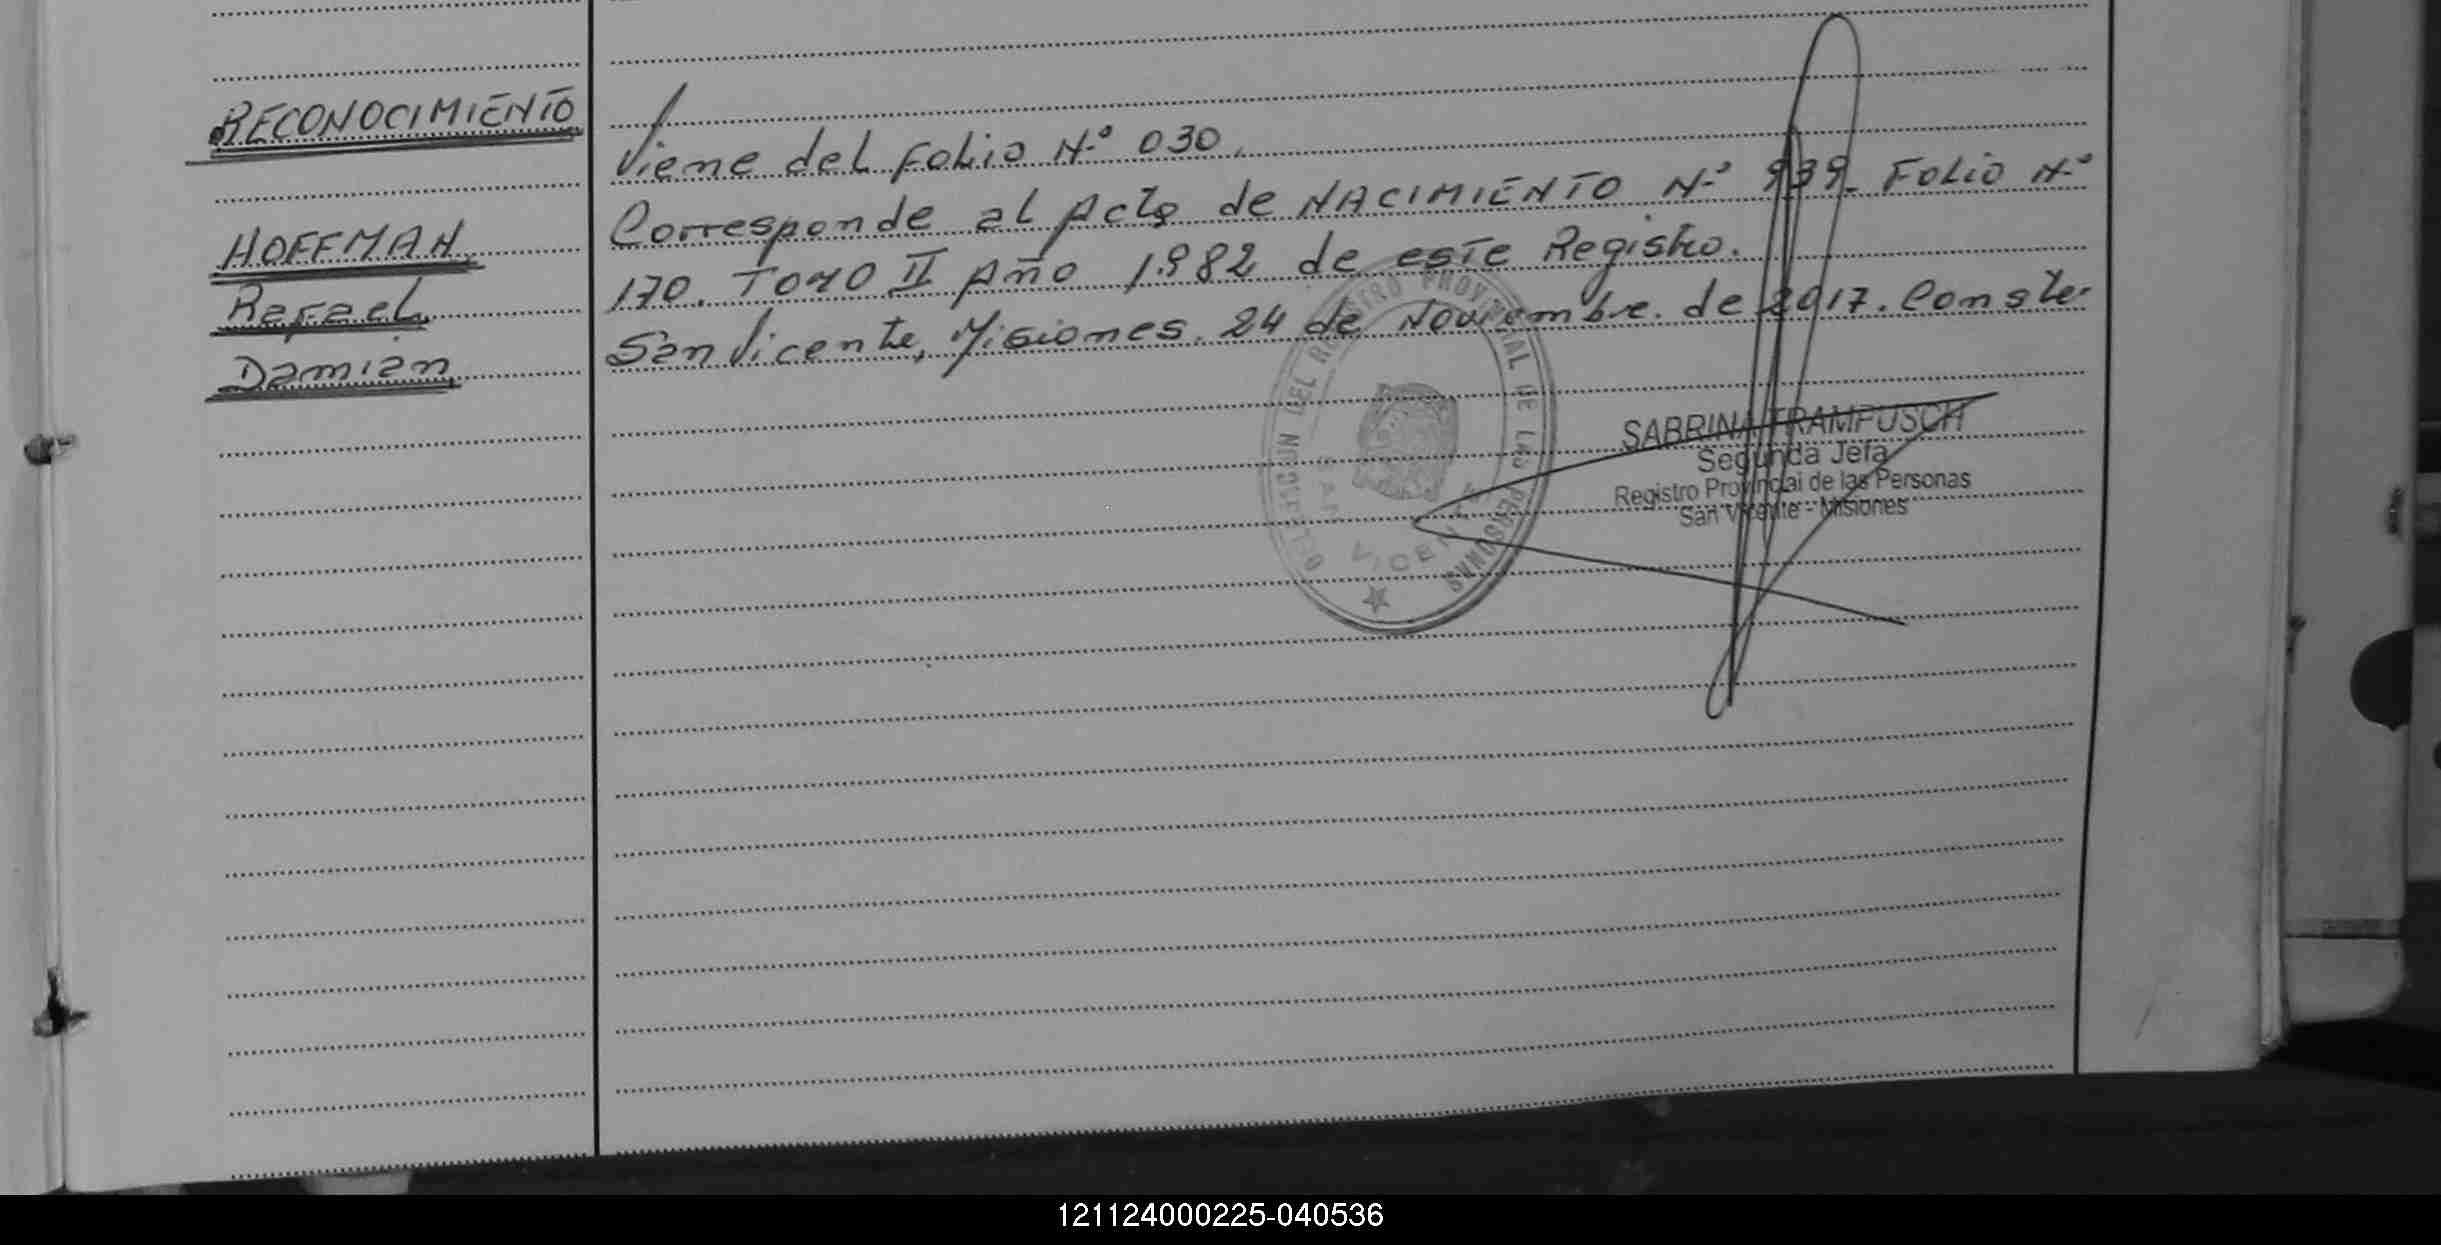 RECONOCIMIENTO
HOFFMAN
Rafael
Damián
Viene del Folio N.º 030.
Corresponde al Acta de NACIMIENTO N.º 939 Folio N.º
170. TOMO II Año 1.982 de este Registro.
San Vicente, Misiones. 24 de Noviembre. de 2017. Conste.
DELEGACION DEL REGISTRO PROVINCIAL DE LAS PERSONAS
SAN VICENTE
SABRINA TRAMPUSCH
Segunda Jefa
Registro Provincial de las Personas
San Vicente - Misiones
121124000225-040536